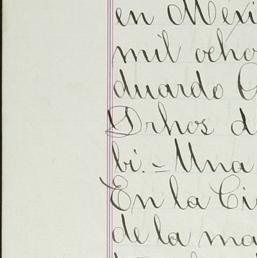 en Méxi
mil ocho
duardo
Drhos d
bi. - Una
En la Ci
de la ma